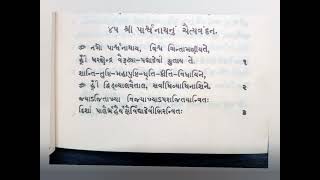 ૪૫ શ્રી પાર્શ્વનાથનું ચૈત્યવંદન.
ૐ નમો પાર્શ્વનાથાય, વિશ્વ ચિન્તામણીયતે,
હ્રીં ધરણેન્દ્ર વૈરુટ્યા-પદ્માદેવી યુતાય તે. ૧
શાન્તિ-તુષ્ટિ-મહાપુષ્ટિ-ધૃતિ-કીર્તિ-વિધાયિને,
ૐ હ્રીં દ્વિડ્વ્યાલવૈતાલ, સર્વાધિવ્યાધિનાશિને. ૨
જયાડજિતાખ્યા વિજયાખ્યાડપરાજિતયાન્વિતઃ
દિશાં પાલૈર્ગ્રહૈર્યક્ષૈર્વિદ્યાદેવીભિરન્વિતઃ ૩